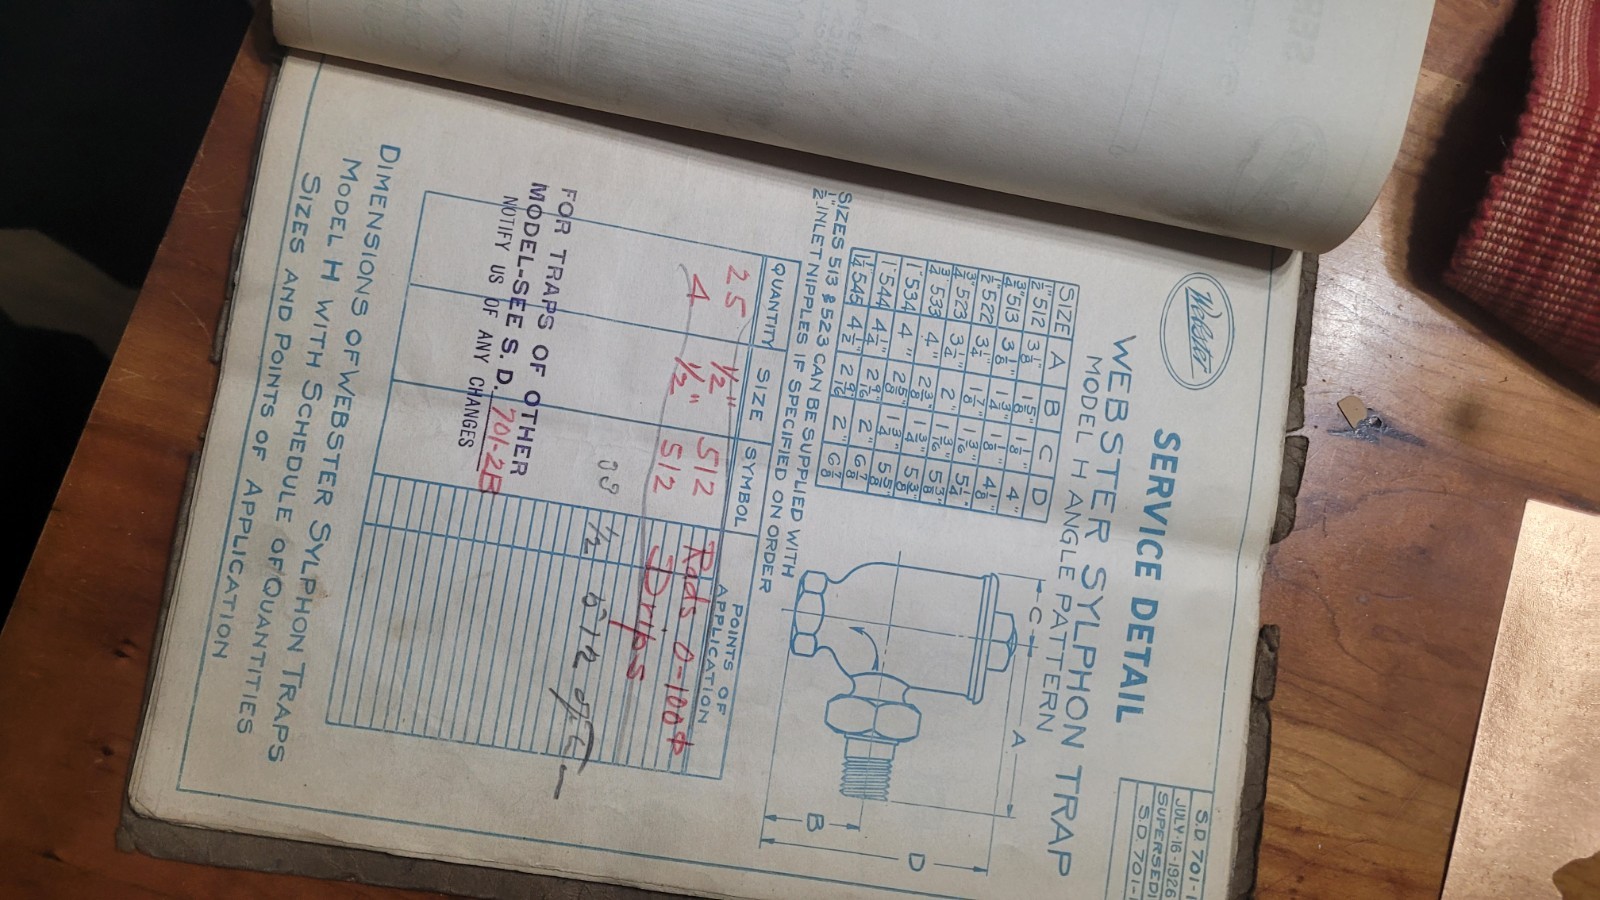 Webster
SERVICE DETAIL
WEBSTER SYLPHON TRAP
MODEL H ANGLE PATTERN
S.D. 701-1
JULY-16-1926
S.D. 701-1
SIZE A B C D
1/2" 512 3 1/8" 1 5/8" 1 1/8" 4"
3/4" 513 3 1/8" 1 3/4" 1 1/8" 4 1/8"
1/2" 522 3 1/4" 1 7/8" 1 3/16" 5 1/4"
3/4" 523 3 1/4" 2" 1 3/16" 5 3/8"
3/4" 533 4" 2 3/8" 1 3/4" 5 3/8"
1" 534 4" 2 5/8" 1 3/4" 5 5/8"
1" 544 4 1/4" 2 9/16" 2" 6 7/8"
1 1/4" 545 4 1/2" 2 9/16" 2" 6 7/8"
C
A
B
D
SIZES 513 & 523 CAN BE SUPPLIED WITH
1/2" INLET NIPPLES IF SPECIFIED ON ORDER
QUANTITY SIZE SYMBOL POINTS OF APPLICATION
25 1/2" 512 Rads 0-100
4 1/2" 512 Drips
1/2
FOR TRAPS OF OTHER
MODEL-SEE S. D. 701-2B
NOTIFY US OF ANY CHANGES
DIMENSIONS OF WEBSTER SYLPHON TRAPS
MODEL H WITH SCHEDULE OF QUANTITIES
SIZES AND POINTS OF APPLICATION